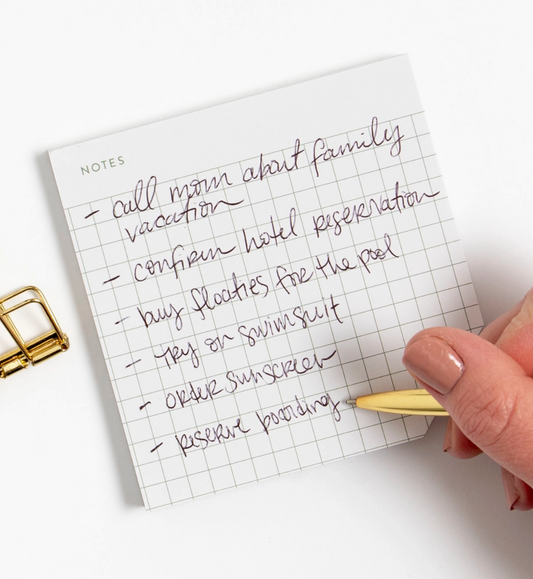 NOTES
- call mom about family
vacation
- confirm hotel reservation
- buy floaties for the pool
- try on swimsuit
- order sunscreen
- reserve boarding